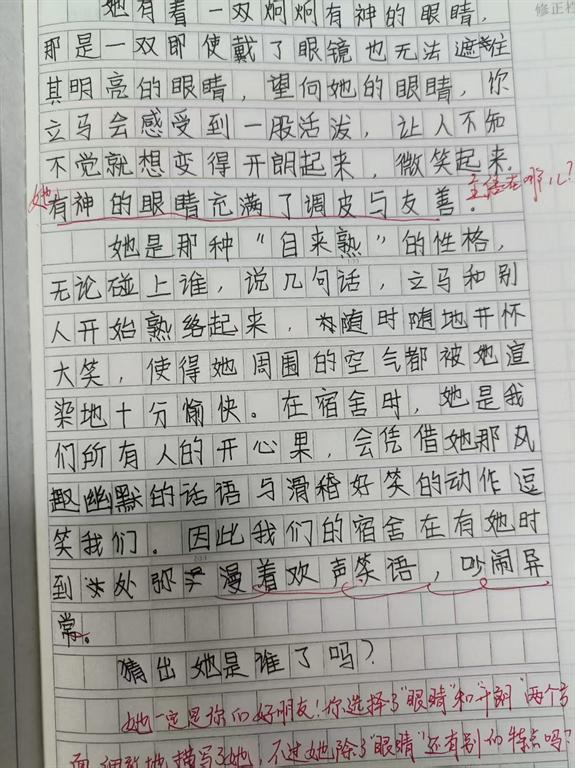 修正栏
她有着一双炯炯有神的眼睛，
那是一双即使戴了眼镜也无法遮住
其明亮的眼睛，望向她的眼睛，你
立马会感受到一股活泼，让人不知
不觉就想变得开朗起来，微笑起来，
她有神的眼睛充满了调皮与友善。
主语在哪儿？
她是那种“自来熟”的性格，
无论碰上谁，说几句话，立马和别
人开始熟络起来，随时随地开怀
大笑，使得她周围的空气都被她渲
染地十分愉快。在宿舍时，她是我
们所有人的开心果，会凭借她那风
趣幽默的话语与滑稽好笑的动作逗
笑我们。因此我们的宿舍在有她时
到处弥漫着欢声笑语，吵闹异
常。
猜出她是谁了吗？
她一定是你的好朋友！你选择了“眼睛”和“开朗”两个方
面细致地描写了她，不过她除了“眼睛”还有别的特点吗？